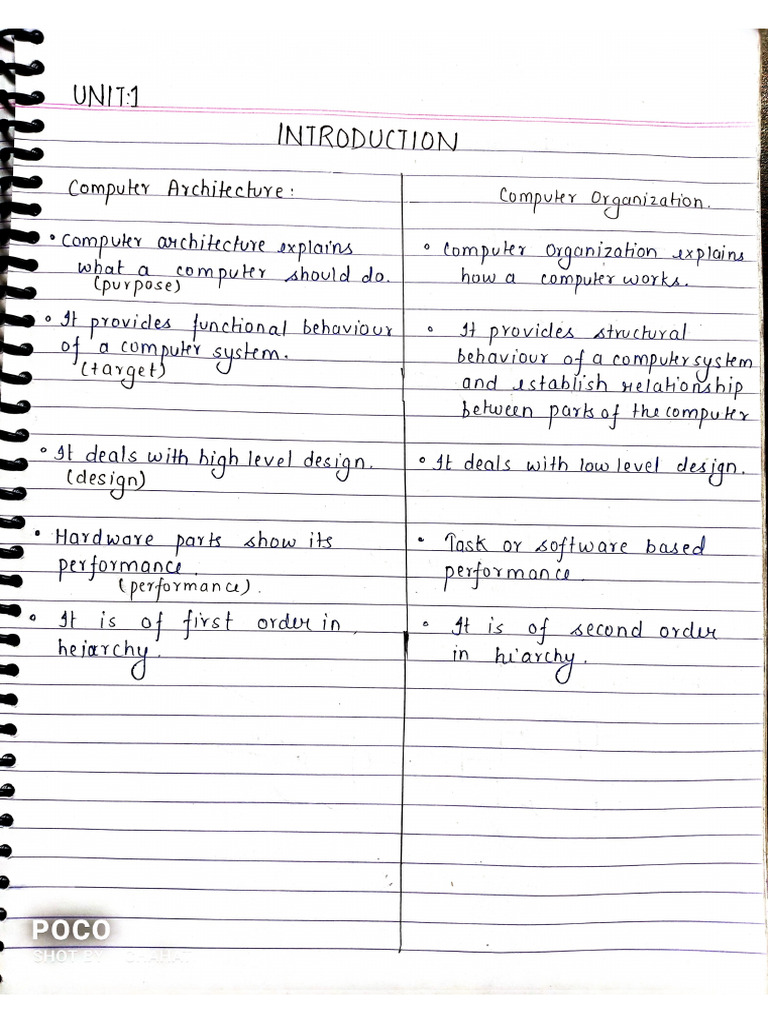 UNIT:1
INTRODUCTION
Computer Architecture:
• Computer architecture explains
what a computer should do.
(purpose)
• It provides functional behaviour
of a computer system.
(target)
• It deals with high level design.
(design)
• Hardware parts show its
performance.
(performance).
• It is of first order in
heiarchy.
Computer Organization.
• Computer Organization explains
how a computer works.
• It provides structural
behaviour of a computer system
and establish relationship
between parts of the computer
• It deals with low level design.
• Task or software based
performance.
• It is of second order
in hi'archy.
POCO
SHOT BY